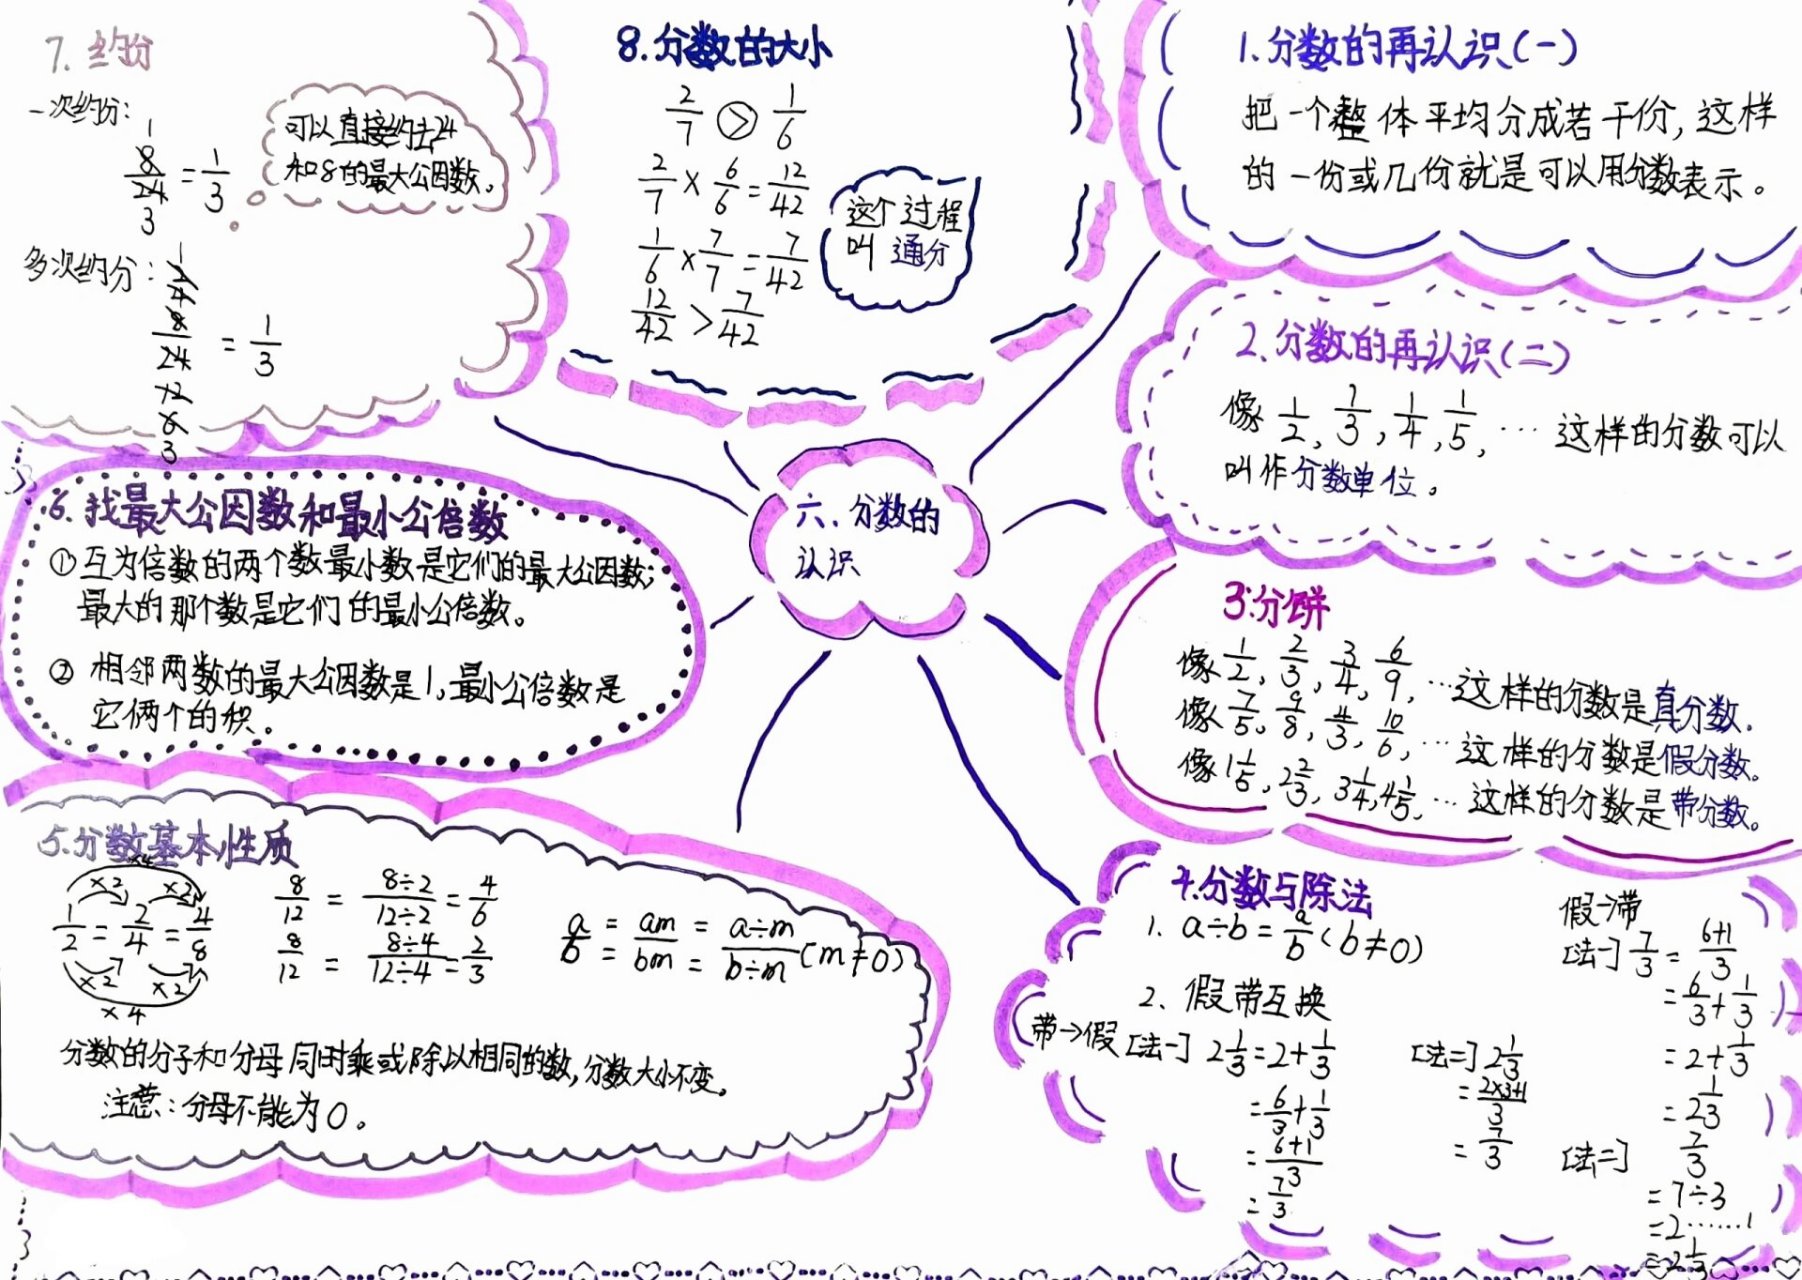 六、分数的
认识
1.分数的再认识(一)
把一个整体平均分成若干份,这样
的一份或几份就是可以用分数表示。
2.分数的再认识(二)
像1/2,1/3,1/4,1/5,…这样的分数可以
叫作分数单位。
3.分饼
像1/2,2/3,3/4,6/9,…这样的分数是真分数.
像7/5,9/8,4/3,10/6,…这样的分数是假分数。
像1 1/5,2 2/3,3 1/4,4 1/5,…这样的分数是带分数。
4.分数与除法
1. a÷b=a/b(b≠0)
2、假带互换
带→假[法一] 2 1/3=2+1/3
=6/3+1/3
=(6+1)/3
=7/3
[法二] 2 1/3
=(2×3+1)/3
=7/3
假→带
[法一] 7/3=(6+1)/3
=6/3+1/3
=2+1/3
=2 1/3
[法二] 7/3
=7÷3
=2……1
=2 1/3
5.分数基本性质
×4
×2 ×2
1/2=2/4=4/8
×2 ×2
×4
8/12=(8÷2)/(12÷2)=4/6
8/12=(8÷4)/(12÷4)=2/3
a/b=am/bm=(a÷m)/(b÷m)(m≠0)
分数的分子和分母同时乘或除以相同的数,分数大小不变。
注意:分母不能为0。
6.找最大公因数和最小公倍数
①互为倍数的两个数最小数是它们的最大公因数;
最大的那个数是它们的最小公倍数。
②相邻两数的最大公因数是1,最小公倍数是
它俩个的积。
7.约份
一次约份:
1
8/24=1/3
3
可以直接约去24
和8的最大公因数。
多次约分:
1
4
8/24=1/3
12
6
3
8.分数的大小
2/7>1/6
2/7×6/6=12/42
1/6×7/7=7/42
12/42>7/42
这个过程
叫通分